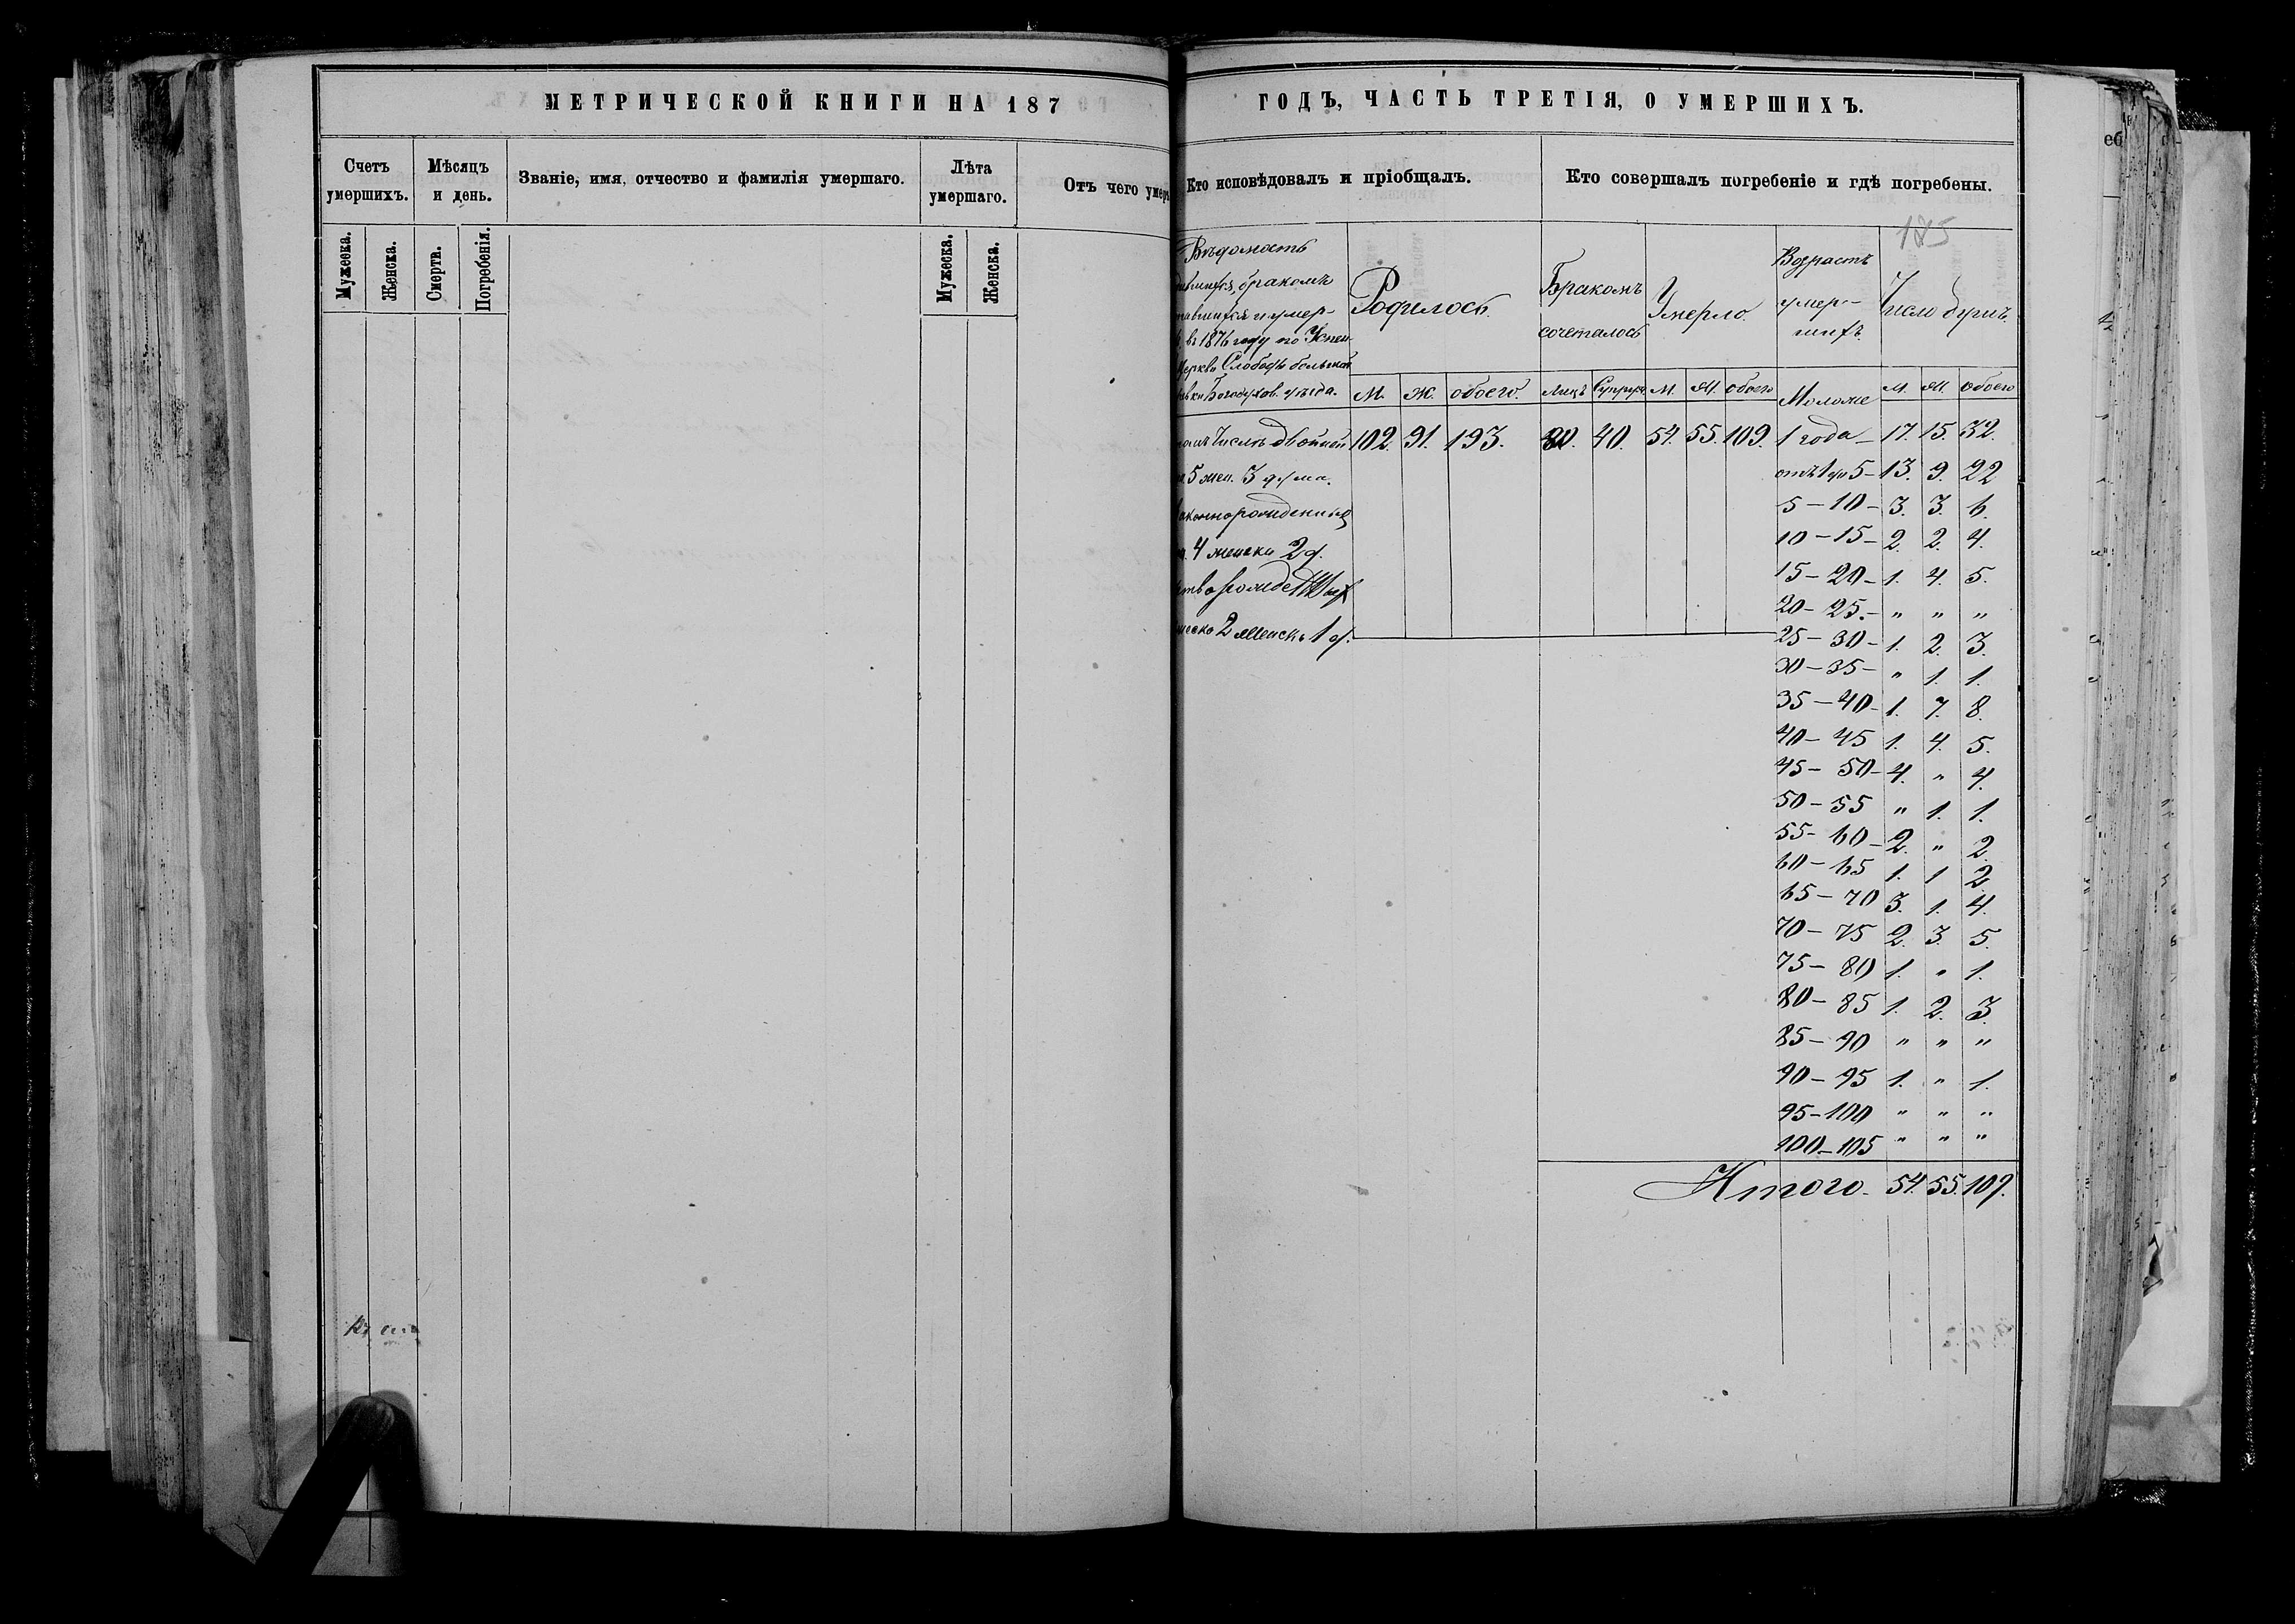 МЕТРИЧЕСКОЙ КНИГИ НА 187
Счетъ умершихъ.
Мѣсяцъ и день.
Званіе, имя, отчество и фамилія умершаго.
Лѣта умершаго.
Отъ чего умер
Мужеска.
Женска.
Смерти.
Погребенія.
Мужеска.
Женска.
ГОДЪ, ЧАСТЬ ТРЕТІЯ, О УМЕРШИХЪ.
Кто исповѣдовалъ и пріобщалъ.
Кто совершалъ погребеніе и гдѣ погребены.
185
Вѣдомость
бракомъ
и умер-
въ 1876 году по Успен
Слободѣ
Богодухов. уѣзда.
Родилось.
Бракомъ сочеталось
Умерло.
Возрастъ умер-шихъ.
Число душъ.
М. Ж. обоего. Лицъ Супруж. М. Ж. обоего
М. Ж. обоего
числѣ двойней 102. 91. 193. 80. 40. 54. 55. 109.
Моложе
1 года — 17. 15. 32.
5 жен. 3 отъ 1 до 5 — 13. 9. 22
5 — 10 — 3. 3. 6.
4 женска 2 10 — 15 — 2. 2. 4.
15 — 20 — 1. 4. 5.
20 — 25. — " " "
2 женск. 1 25 — 30 — 1. 2. 3.
30 — 35 — " 1. 1.
35 — 40 — 1. 7. 8.
40 — 45 1. 4. 5.
45 — 50 — 4. " 4.
50 — 55 " 1. 1.
55 — 60 — 2. " 2.
60 — 65 1. 1 2
65 — 70 3. 1. 4.
70 — 75 2. 3. 5.
75 — 80 1. " 1.
80 — 85 1. 2. 3.
85 — 90 " " "
90 — 95 1. " 1.
95 — 100 " " "
100 — 105 " " "
Итого. 54. 55. 109.